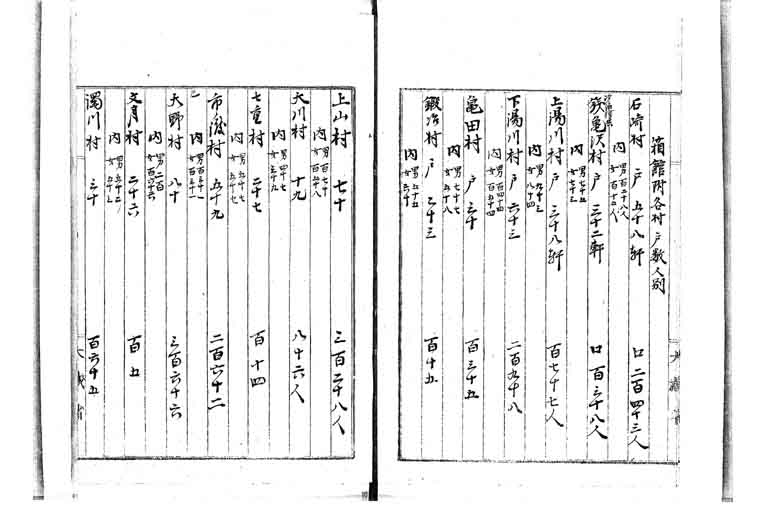 箱館附各村戸数人別
石崎村 戸 五十八軒 口 二百四十三人
内 男百二十八人 女百十五人
銭亀沢村 戸 三十二軒 口 百三十八人
内 男七十五 女六十三
上湯川村 戸 三十八軒 百七十七人
内 男九十三 女八十四
下湯川村 戸 六十三 二百九十八
内 男百四十四 女百五十四
亀田村 戸 三十 百三十五
内 男七十七 女五十八
鍛冶村 戸 二十三 百十五
内 男五十五 女六十
上山村 七十 三百二十八人
内 男百七十 女百五十八
大川村 十九 八十六人
内 男四十七 女三十九
七重村 二十七 百十四
内 男五十七 女五十七
市渡村 五十九 二百六十二
内 男百三十一 女百三十一
大野村 八十 三百六十六
内 男二百 女百六十六
文月村 二十六 百五
内 男五十二 女五十三
濁川村 三十 百六十五
大蔵省
大蔵省